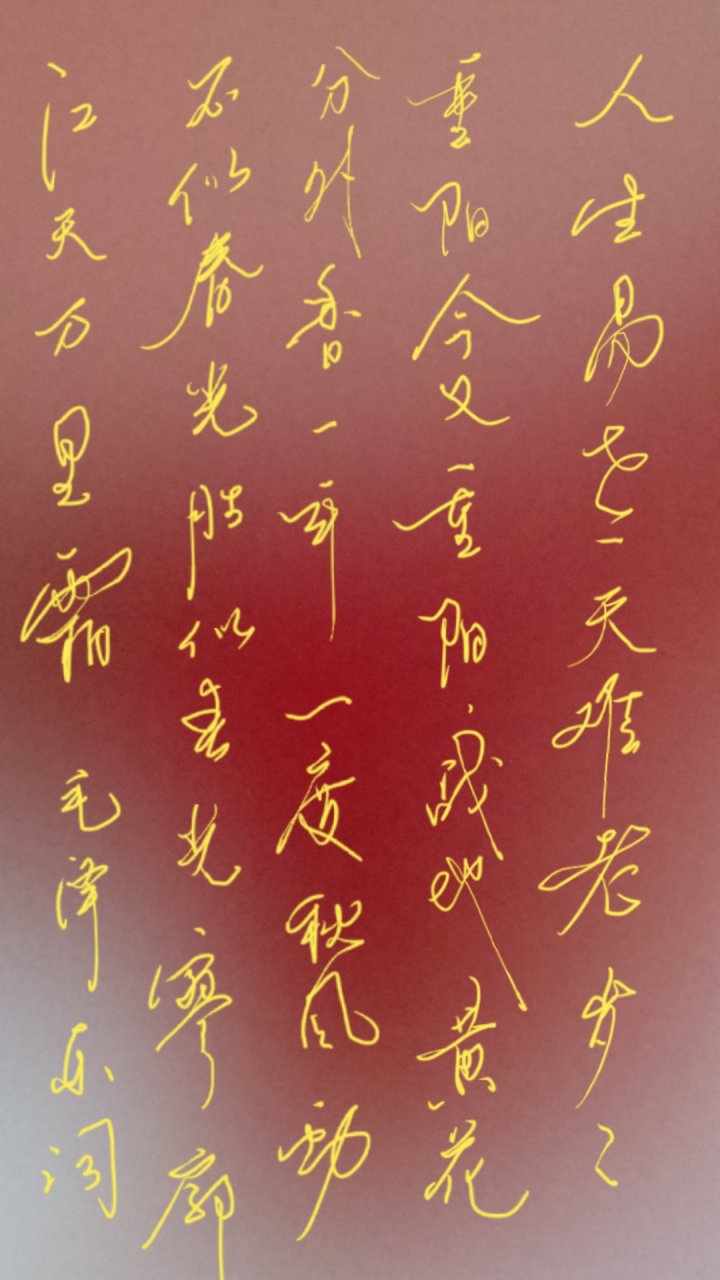 人生易老天难老岁々
重阳今又重阳战地黄花
分外香一年一度秋风劲
不似春光胜似春光寥廓
江天万里霜 毛泽东词